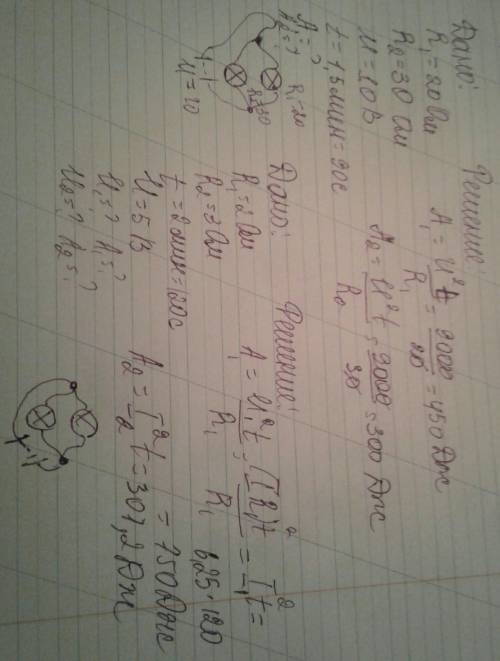 Дано:
R₁ = 20 Ом
R₂ = 30 Ом
U = 10 В
t = 1,5 мин = 90 с
A₁ - ?
A₂ - ?
R₁ = 20
R₂ = 30
U = 10
Решение:
A₁ = U²t/R₁ = 9000/20 = 450 Дж
A₂ = U²t/R₂ = 9000/30 = 300 Дж
Дано:
R₁ = 2 Ом
R₂ = 3 Ом
t = 2 мин = 120 с
U = 5 В
U₁ = ? A₁ = ?
U₂ = ? A₂ = ?
Решение:
A₁ = U₁²t/R₁ = (IR₁)²t/R₁ = I₁²t =
6,25·120
= 750 Дж
A₂ = I₂²t = 307,2 Дж